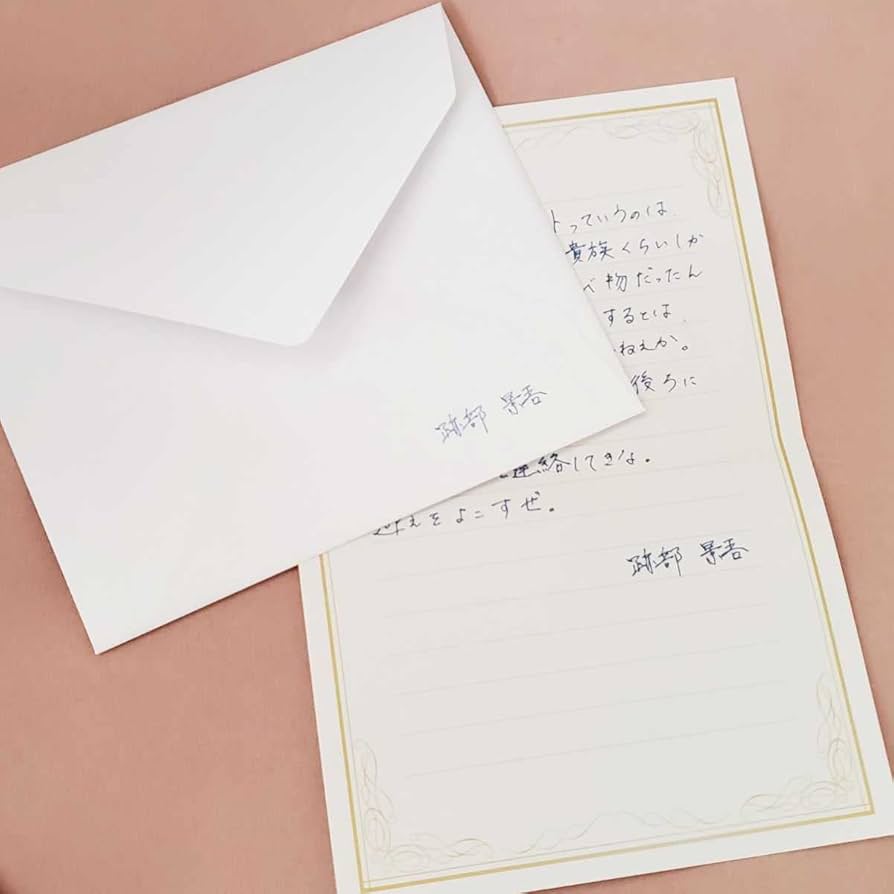 跡部 景吾
トっていうのは、
貴族くらいしか
べ物だったん
するとは、
ねぇか。
後ろに
連絡してきな。
迎えをよこすぜ。
跡部 景吾